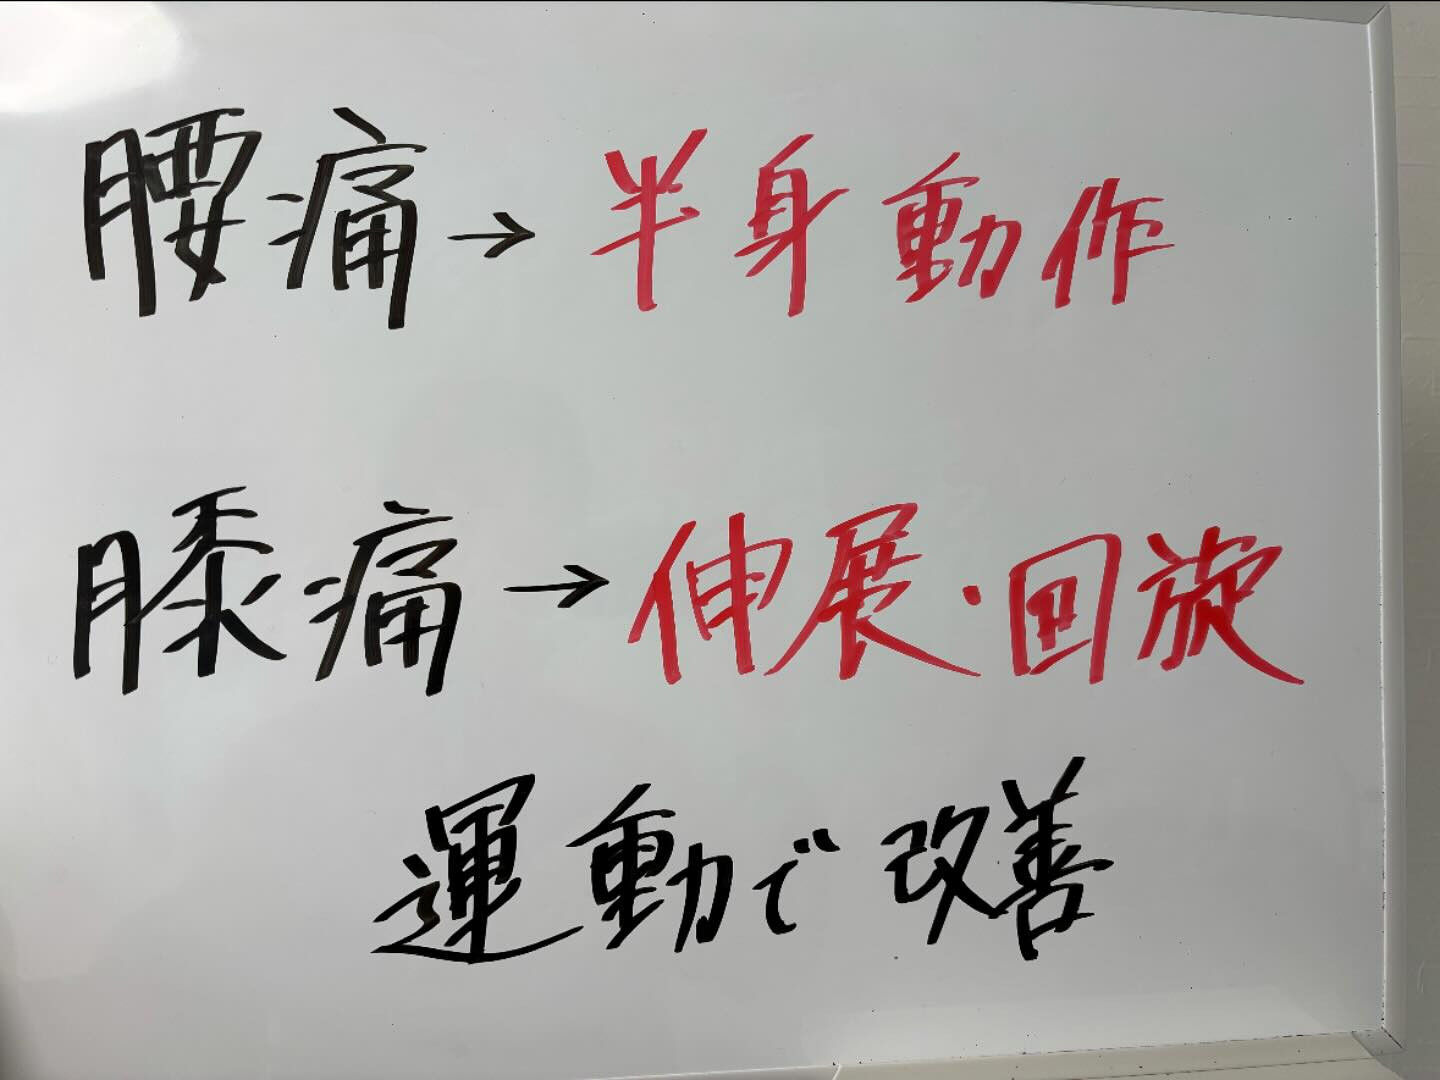 腰痛→半身動作
膝痛→伸展・回旋
運動で改善